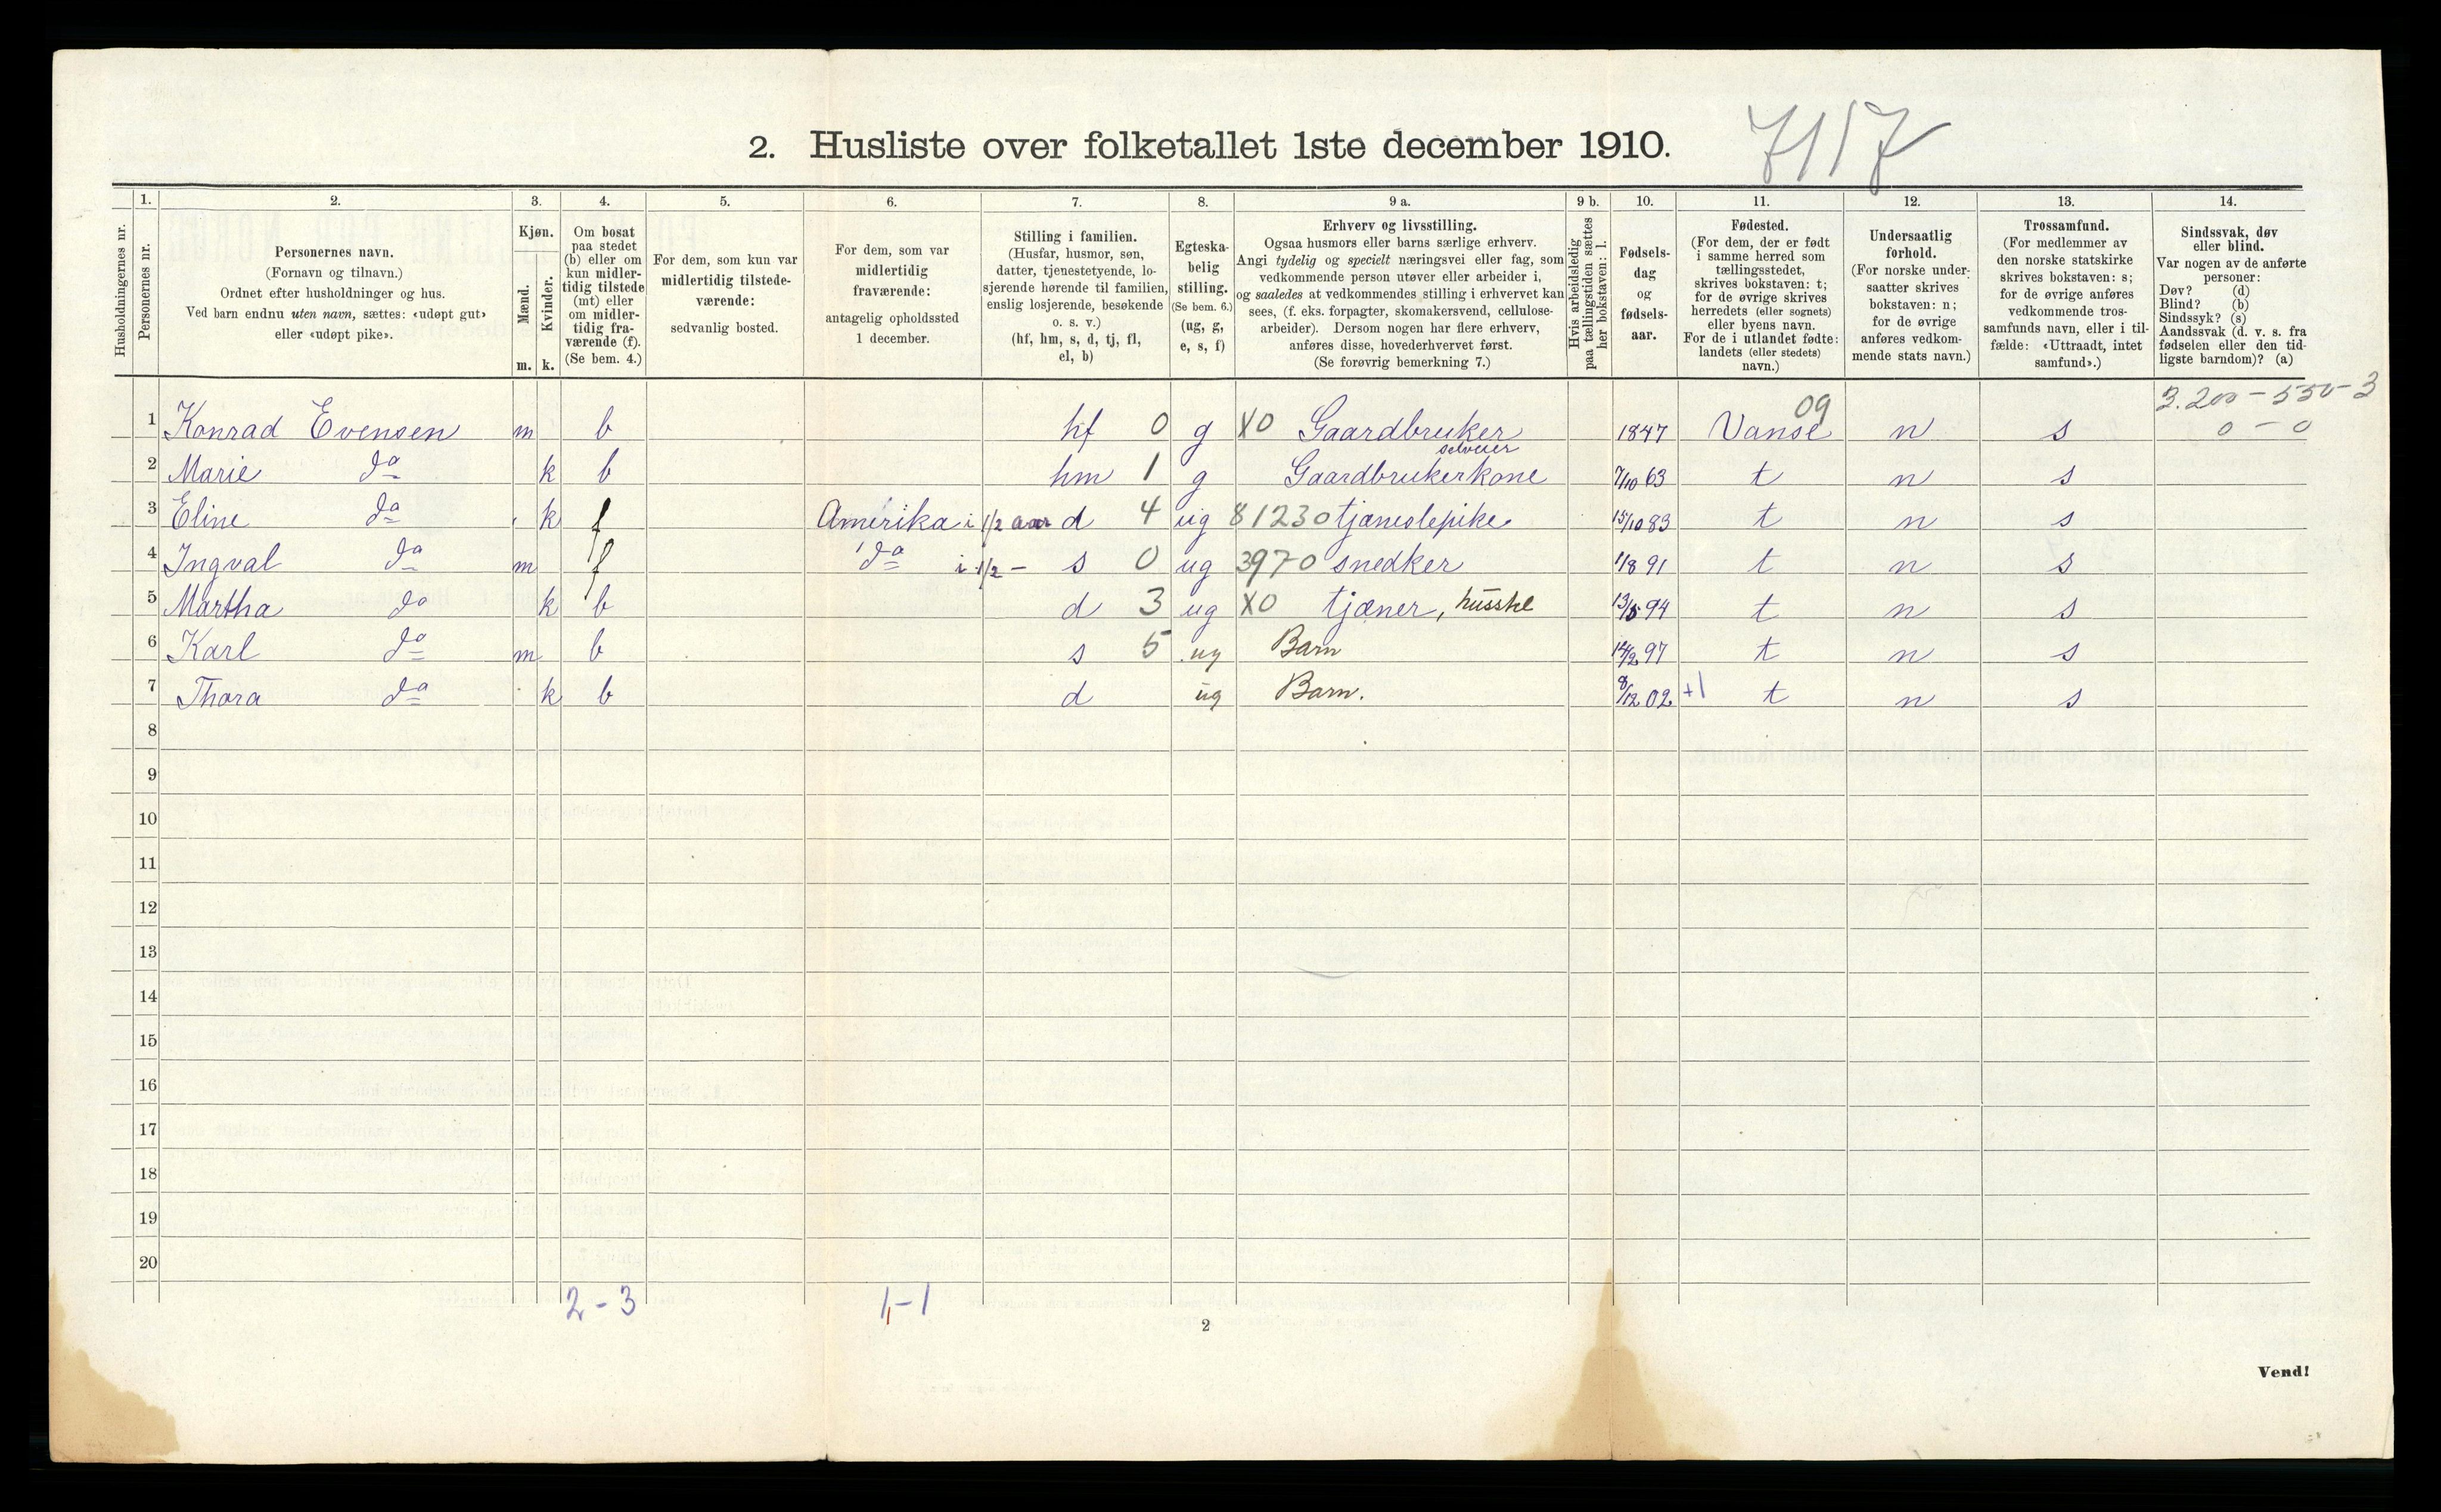 2. Husliste over folketallet 1ste december 1910. 7117
1. 2. 3. 4. 5. 6. 7. 8. 9 a. 9 b. 10. 11. 12. 13. 14.
Husholdningernes nr.
Personernes nr.
Personernes navn.
(Fornavn og tilnavn.)
Ordnet efter husholdninger og hus.
Ved barn endnu uten navn, sættes: «udøpt gut»
eller «udøpt pike».
Kjøn.
Mænd.
Kvinder.
m. k.
Om bosat
paa stedet
(b) eller om
kun midler-
tidig tilstede
(mt) eller
om midler-
tidig fra-
værende (f).
(Se bem. 4.)
For dem, som kun var
midlertidig tilstede-
værende:
sedvanlig bosted.
For dem, som var
midlertidig
fraværende:
antagelig opholdssted
1 december.
Stilling i familien.
(Husfar, husmor, søn,
datter, tjenestetyende, lo-
sjerende hørende til familien,
enslig losjerende, besøkende
o. s. v.)
(hf, hm, s, d, tj, fl,
el, b)
Egteska-
belig
stilling.
(Se bem. 6.)
(ug, g,
e, s, f)
Erhverv og livsstilling.
Ogsaa husmors eller barns særlige erhverv.
Angi tydelig og specielt næringsvei eller fag, som
vedkommende person utøver eller arbeider i,
og saaledes at vedkommendes stilling i erhvervet kan
sees, (f. eks. forpagter, skomakersvend, cellulose-
arbeider). Dersom nogen har flere erhverv,
anføres disse, hovederhvervet først.
(Se forøvrig bemerkning 7.)
Hvis arbeidsledig
paa tællingstiden sættes
her bokstaven: l.
Fødsels-
dag
og
fødsels-
aar.
Fødested.
(For dem, der er født
i samme herred som
tællingsstedet,
skrives bokstaven: t;
for de øvrige skrives
herredets (eller sognets)
eller byens navn.
For de i utlandet fødte:
landets (eller stedets)
navn.)
Undersaatlig
forhold.
(For norske under-
saatter skrives
bokstaven: n;
for de øvrige
anføres vedkom-
mende stats navn.)
Trossamfund.
(For medlemmer av
den norske statskirke
skrives bokstaven: s;
for de øvrige anføres
vedkommende tros-
samfunds navn, eller i til-
fælde: «Uttraadt, intet
samfund».)
Sindssvak, døv
eller blind.
Var nogen av de anførte
personer:
Døv? (d)
Blind? (b)
Sindssyk? (s)
Aandssvak (d. v. s. fra
fødselen eller den tid-
ligste barndom)? (a)
09 3.200-550-3
1 Konrad Evensen m b hf 0 g X0 Gaardbruker 1847 Vanse n s 0 - 0
selveier
2 Marie do k b hm 1 g Gaardbrukerkone 7/10 63 t n s
3 Eline do k f Amerika i 1/2 aar d 4 ug 81230 tjenestepike 15/10 83 t n s
4 Ingval do m f do i 1/2 - s 0 ug 3970 snedker 1/8 91 t n s
5 Martha do k b d 3 ug X0 tjæner, husstel 13/5 94 t n s
6 Karl do m b s 5 ug Barn 14/2 97 t n s
7 Thora do k b d ug Barn. 8/12 02 +1 t n s
8
9
10
11
12
13
14
15
16
17
18
19
20
2-3 1-1
2
Vend!